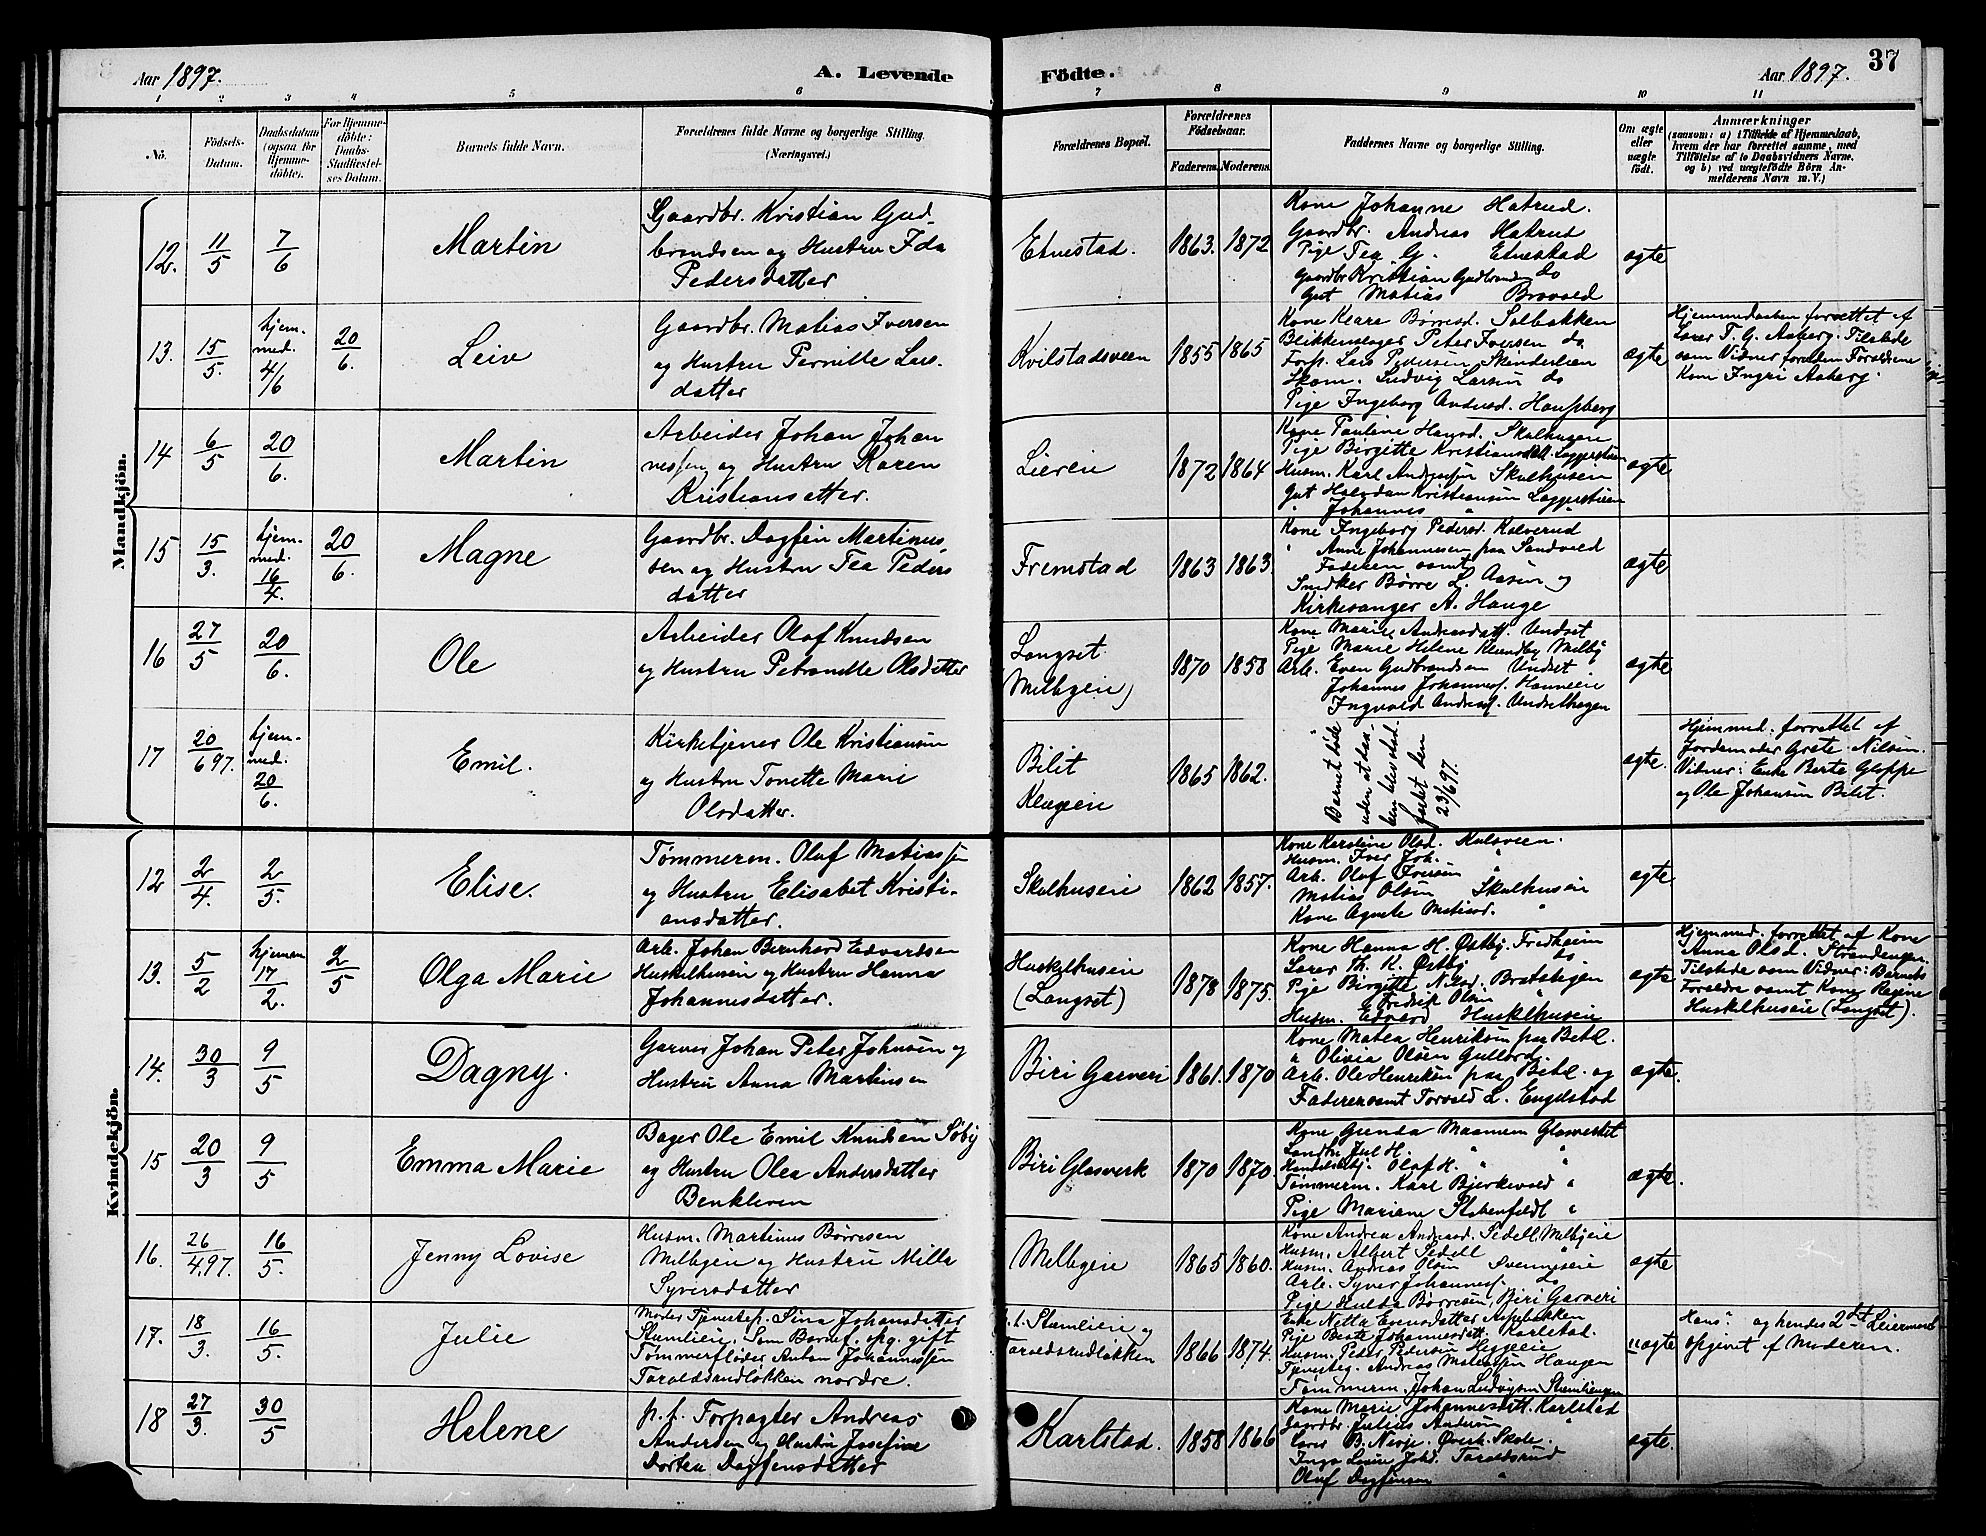 Aar 1897.
A. Levende
Födte.
Aar 1897.
37
1 2 3 4 5 6 7 8 9 10 11
No.
Födsels-Datum.
Daabsdatum (ogsaa for Hjemme-döbte).
For Hjemme-döbte: Daabs-Stadfæstel-ses Datum.
Barnets fulde Navn.
Forældrenes fulde Navne og borgerlige Stilling.
(Næringsvei.)
Forældrenes Bopæl.
Forældrenes Födselsaar.
Faderens. Moderens.
Faddernes Navne og borgerlige Stilling.
Om ægte eller uægte födt.
Anmærkninger
(saasom: a) i Tilfælde af Hjemmedaab,
hvem der har forrettet samme, med
Tilföielse af to Daabsvidners Navne.
og b) ved uægtefödte Börn An-
melderens Navn m. V.)
Mandkjön.
12. 11/5 7/6 Martin
Gaardbr. Kristian Gud-
brandsen og Hustru Ida
Pedersdatter
Etnestad. 1863. 1872
Kone Johanne Hatrud.
Gaardbr. Andreas Hatrud
Pige Tea G. Etnestad
Gaardbr Kristian Gudbrandsen do
Gut Matias Brovold
ægte
13. 15/5. hjem-
med.
4/6 20/6. Leiv
Gaardbr. Matias Iversen
og Hustru Pernille Lars-
datter
Kvilstadsveen 1855 1865
Kone Klara Børresd. Solbakken
Blikkenslager Peter Iversen do
Forp. Lars Pedersen Skinderlien
Skom. Ludvig Larsen do
Pige Ingeborg Andersd.
ægte
Hjemmedaaben forrettet af
Lærer T. G. Aaberg. Tilstede
som Vidner foruden Forældrene
Kone Ingri Aaberg.
14 6/5 20/6. Martin
Arbeider Johan Johan
nessen og Hustru Karen
Kristiansatter.
Lieeie 1872 1864
Kone Pauline Hansd. Skulhuseie
Pige Birgitte Kristiansdatt.
Husm. Karl Andreassen Skulhuseie
Gut Halvdan Kristiansen
" Johannes " "
ægte
15 15/3. hjem-
med.
16/4. 20/6. Magne
Gaardbr. Dagfin Martinus-
sen og Hustru Tea Peders
datter
Fremstad 1863 1863.
Kone Ingeborg Pedersd. Kalverud
" Anne Johannesen paa Sandvold
Faderen samt
Snedker Børre L. Aasen og
Kirkesanger A. Hauge
ægte
16 27/5 20/6. Ole
Arbeider Olaf Knudsen
og Hustru Petronelle Olsdatter
Langset
(Melbyeie) 1870 1858
Kone Marie Andreasdatt. Undset
Pige Marie Helene Melby
Arb. Even Gudbrandsen Undset
Johannes Johannesf. Hanneeie
Ingvald Andreasf. Undsethagen
ægte
17 20/6 97. hjem-
med.
20/6. Emil.
Kirketjener Ole Kristiansen
og Hustru Tonette Marie
Olsdatter.
Bilit
Klageie 1865 1862.
Barnet døde
uden at daa-
ben blev stad-
fæstet den
23/6 97.
ægte.
Hjemmed. forrettet af
Jordemoder Grete Nilsen.
Vidner: Enke Berte Gloppe
og Ole Johansen Bilit.
Kvindekjön.
12 2/4. 2/5. Elise.
Tømmerm. Olaf Matiassen
og Hustru Elisabet Kristi-
ansdatter.
Skulhuseie 1862 1857.
Kone Karoline Olsd. Kulsveen.
Husm. Iver Joh. "
Arb. Olaf Iversen "
Matias Olsen Skulhuseie
Kone Agnete Matisd. "
ægte
13. 5/2 hjemm
17/2. 2/5 Olga Marie
Arb. Johan Bernhard Edvardsen
Huskelhuseie og Hustru Hanna
Johannesdatter.
Huskelhuseie
(Langset) 1878 1875.
Kone Hanna H. Østby Fredheim
Lærer Th. K. Østby do
Pige Birgitte Nilsd. Bratstigen
" Fredrik Olsen "
Husm. Edvard Huskelhuseie
ægte
Hjemmed. forrettet af Kone
Anna Olsd. Strandengen.
Tilstede som Vidner: Barnets
Forældre samt Kone Regine
Huskelhuseie (Langset).
14. 30/3 9/5 Dagny.
Garver Johan Peter Johnsen og
Hustru Anna Martinsen
Biri Garveri 1861. 1870
Kone Matea Henriksen paa Betel.
" Olivia Olsen Gullord
Arb. Ole Henriksen paa Betel. og
Faderen samt Torvald L. Engelstad
ægte.
15 20/3 9/5 Emma Marie
Bager Ole Emil Knudsen Søby
og Hustru Olea Andersdatter
Benkleven
Biri Glasverk 1870 1870
Kone Gunda Maanum Glasverket
Landh. Jul H. " "
Handelsbtj. Olaf H. " "
Tømmerm. Karl Bjerkevold "
Pige Mariane Stubenfeldt "
ægte.
16. 26/4 97. 16/5. Jenny Lovise
Husm. Martinus Børresen
Melbyeie og Hustru Milla
Syversdatter
Melbyeie 1865 1860.
Kone Andrea Andreasd. Sedell, Melbyeie
Husm. Albert Sedell "
Husm. Andreas Olsen Svennseie
Arb. Syver Johannesf. do
Pige Hulda Børresen, Biri Garveri
ægte
17. 18/3. 16/5. Julie
Moder Tjenestep. Lina Johansdatter
Stumlieie. Som Barnef. opg. gift
Tømmerfløder Anton Johannessen
Taraldsrudløkken nordre.
p. t. Stumlieie og
Taraldsrudløkken 1866 1874.
Enke Netta Evensdatter Aspebakken
Pige Beate Johannesdatt. Karlstad.
Husm. Peder Pedersen Heggeeie
Tjenestg. Andreas Haugen
Tømmerm. Johan Ludvigsen
uægte
Hans og hendes 2det Leiermaal
opgivet af Moderen.
18 27/3. 30/5 Helene
p. t. Forpagter Andreas
Andersen og Hustru Josefine
Dortea Dagfensdatter
Karlstad. 1858 1866
Kone Marie Johannesdatt. Karlstad
Gaardbr. Julius Andersen "
Lærer B. Neoje, Øverb. Skole.
Inga Lovise Johs. Taraldsrud
Oluf Dagfensen "
ægte.